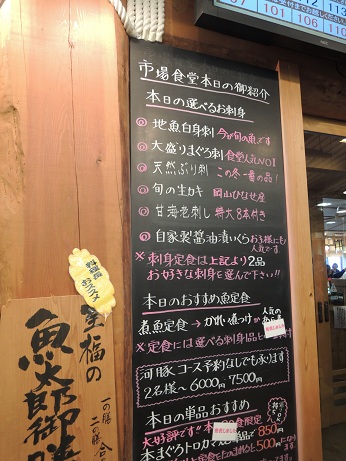 107 101 106 110
市場食堂本日の御紹介
本日の選べるお刺身
◎ 地魚白身刺 今が旬の魚です
◎ 大盛りまぐろ刺 食堂人気NO1
◎ 天然ぶり刺 この冬一番の品!
◎ 旬の生カキ 岡山ひなせ産
◎ 甘海老刺し 特大8本付き
◎ 自家製醤油漬いくら お子様にも人気です
※ 刺身定食は上記より2品
お好きな刺身を選んで下さい!!
本日のおすすめ魚定食
煮魚定食 → かれい煮つけが人気の
※ 定食には選べる刺身1品
河豚コース予約なしでも承ります
2名様〜 6000円 7500円
本日の単品おすすめ
大好評です
本まぐろトロカマ
850円
500円
料理長
おススメ
至福の
魚太郎御膳
一の膳
二の膳